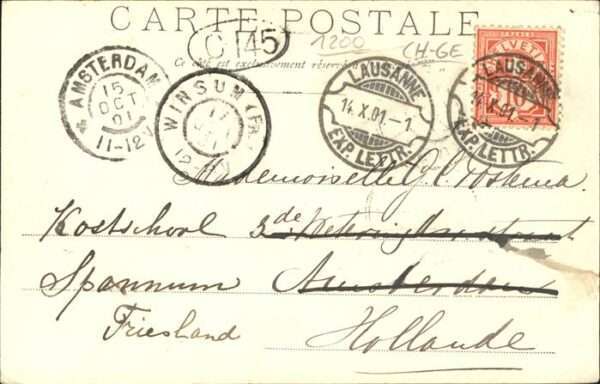 CARTE POSTALE
C 45
1200
CH-GE
Ce côté est exclusivement réservé
AMSTERDAM
15
OCT
01
11-12V
WINSUM (FR:)
LAUSANNE
14.X.01.-1
EXP. LETTR.
HELVETIA
10
LAUSANNE
14.X.01.-1
EXP. LETTR.
Mademoiselle G.
Kostschool 3de
Spannum Amsterdam
Friesland Hollande